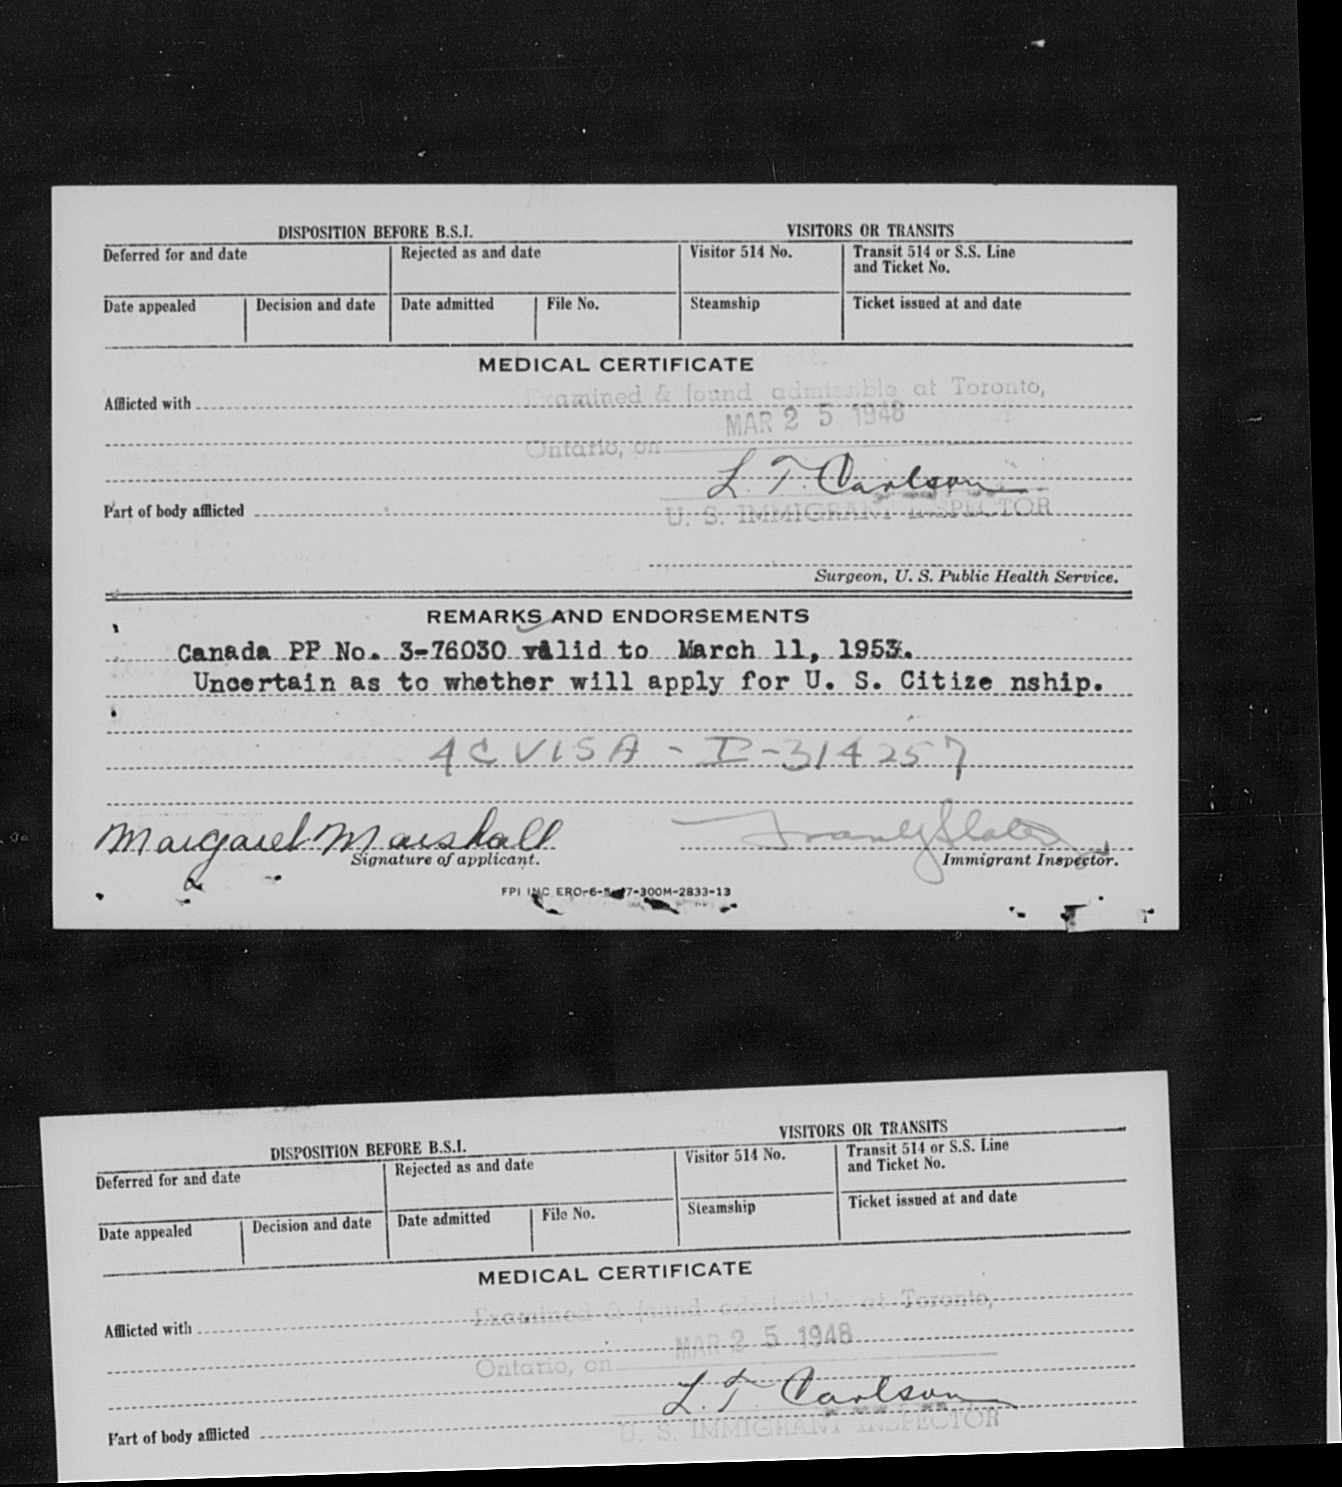 DISPOSITION BEFORE B.S.I. VISITORS OR TRANSITS
Deferred for and date Rejected as and date Visitor 514 No. Transit 514 or S.S. Line
and Ticket No.
Date appealed Decision and date Date admitted File No. Steamship Ticket issued at and date
MEDICAL CERTIFICATE
Examined & found admissible at Toronto,
Afflicted with
MAR 25 1948
Ontario, on
L. T. Carlson
Part of body afflicted
U. S. IMMIGRANT INSPECTOR
Surgeon, U. S. Public Health Service.
REMARKS AND ENDORSEMENTS
Canada PP No. 3-76030 valid to March 11, 1953.
Uncertain as to whether will apply for U. S. Citize nship.
4C VISA - I-314257
Margaret Marshall
Signature of applicant. Immigrant Inspector.
FPI INC ERO-6-5-47-300M-2833-13
DISPOSITION BEFORE B.S.I. VISITORS OR TRANSITS
Deferred for and date Rejected as and date Visitor 514 No. Transit 514 or S.S. Line
and Ticket No.
Date appealed Decision and date Date admitted File No. Steamship Ticket issued at and date
MEDICAL CERTIFICATE
Examined & found admissible at Toronto,
Afflicted with
MAR 25 1948
Ontario, on
L. T. Carlson
Part of body afflicted
U. S. IMMIGRANT INSPECTOR